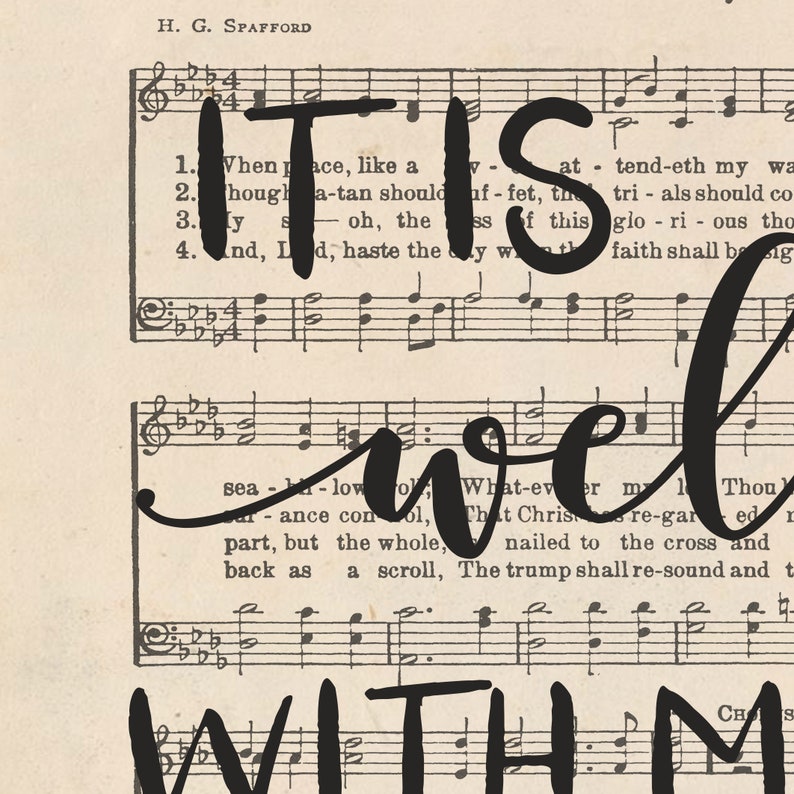 H. G. SPAFFORD
IT IS
1. When peace, like a at - tend-eth my
2. Though Sa-tan should buf - fet, tho' tri - als should
3. My oh, the bliss of this glo - ri - ous
4. And, Lord, haste the day when the faith shall be
wel
sea - bil - lows roll; What-ev-er my Thou
sur - ance con - trol, That Christ has re-gard - ed
part, but the whole, nailed to the cross and
back as a scroll, The trump shall re-sound and
WITH M
CHORUS